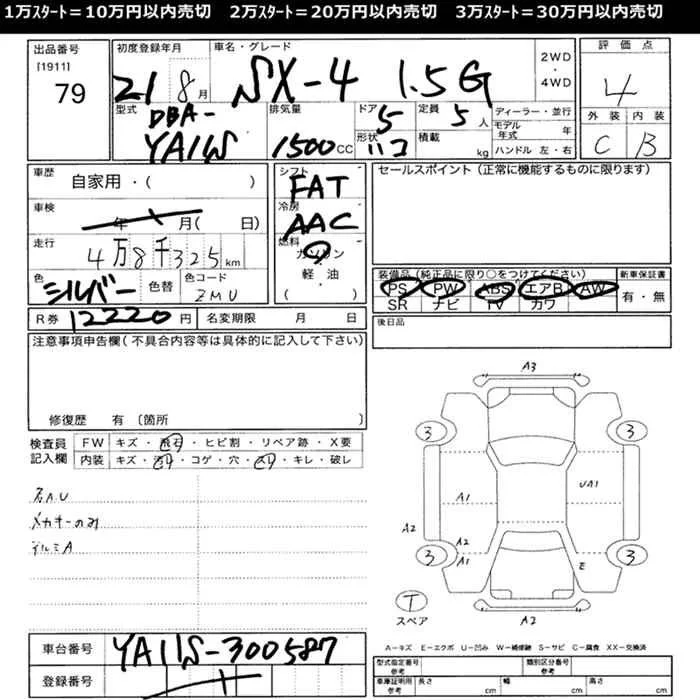 1万ｽﾀｰﾄ＝10万円以内売切　2万ｽﾀｰﾄ＝20万円以内売切　3万ｽﾀｰﾄ＝30万円以内売切
出品番号
[1911]
79
初度登録年月
21 8月
車名・グレード
SX-4 1.5G
2WD・4WD
評価点
4
外装 内装
C B
型式
DBA-
YA11S
排気量
1500CC
ドア
5
形状
ハコ
定員
5人
積載
kg
ディーラー・並行
モデル年式 年
ハンドル 左・右
車歴
自家用・( )
車検
年 月( 日)
走行
4万8千325km
色
シルバー
色替
色コード
ZMU
シフト
FAT
冷房
AAC
燃料
ガソリン
・
軽・油
( )
R券 12220円
名変期限 月 日
セールスポイント(正常に機能するものに限ります)
装備品(純正品に限り○をつけてください)
PS PW ABS エアB AW
SR ナビ TV カワ
新車保証書
有・無
後日品
注意事項申告欄(不具合内容等は具体的に記入して下さい)
修復歴 有〔箇所 〕
検査員記入欄
FW キズ・飛石・ヒビ割・リペア跡・X要
内装 キズ・汚れ・コゲ・穴・スレ・キレ・破レ
メカキーのみ
アルミA
A3
3 3
A1 UA1
A2
A2
A1 E
3 3
T
スペア
A2
A－キズ E－エクボ U－凹み W－補修跡 S－サビ C－腐食 XX－交換済
車台番号 YA11S-300587
登録番号
型式指定番号 参考
類別区分番号 参考
車庫証明用 参考
長さ cm 幅 cm 高さ cm